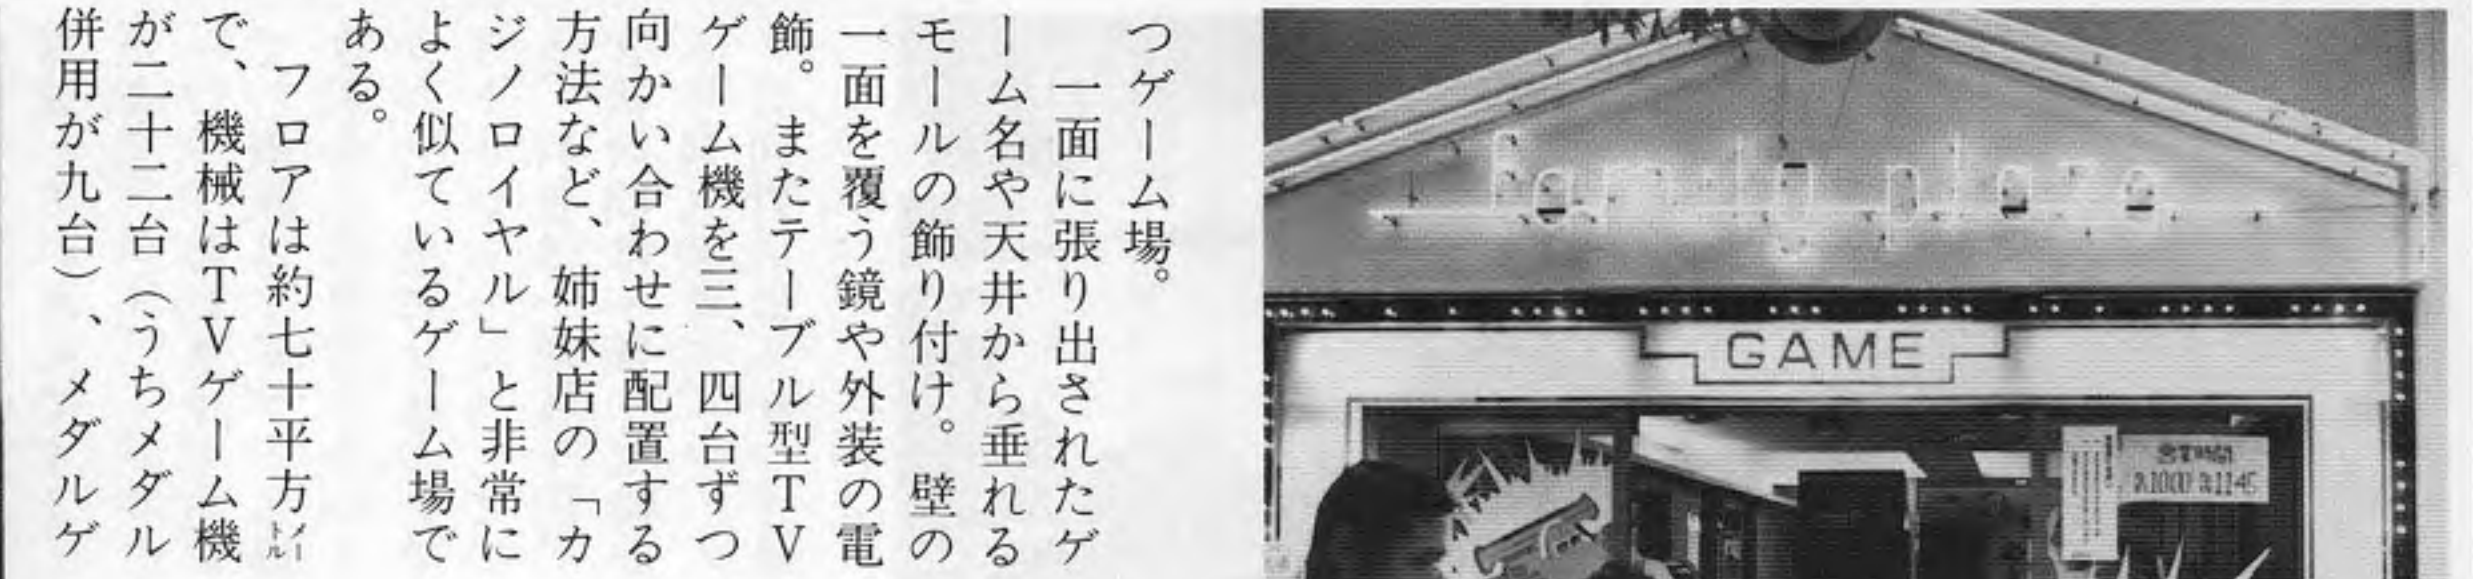 つゲーム場。
一面に張り出されたゲ
ーム名や天井から垂れる
モールの飾り付け。壁の
一面を覆う鏡や外装の電
飾。またテーブル型TV
ゲーム機を三、四台ずつ
向かい合わせに配置する
方法など、姉妹店の「カ
ジノロイヤル」と非常に
よく似ているゲーム場で
ある。
フロアは約七十平方メートル
で、機械はTVゲーム機
が二十二台（うちメダル
併用が九台）、メダルゲ
family plaza
GAME
営業時間